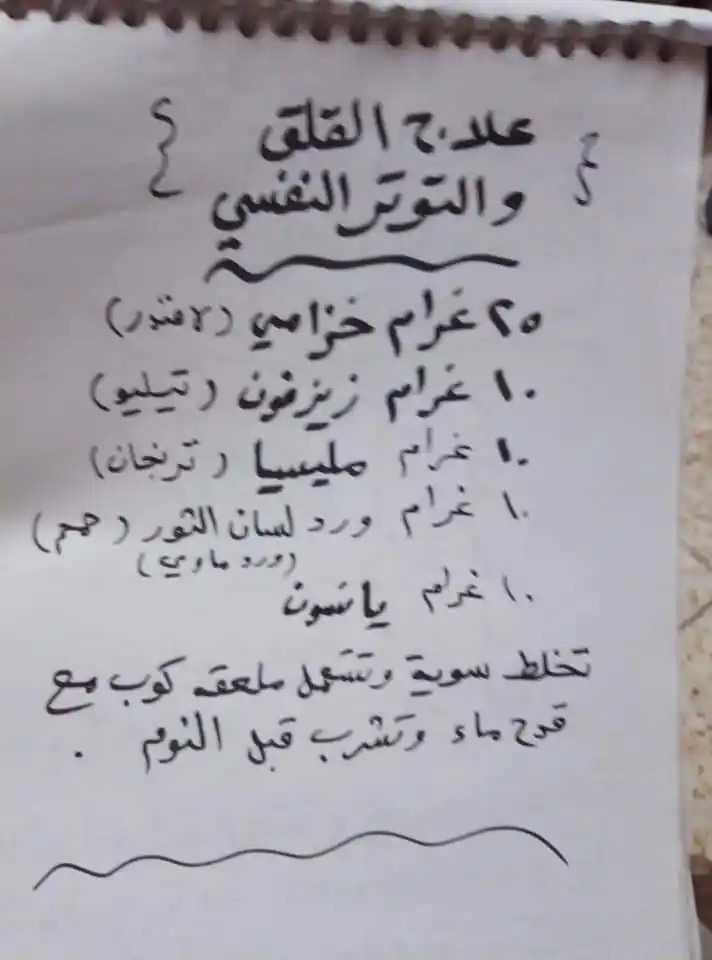 علاج القلق
والتوتر النفسي
٢٥ غرام خزامي (لافندر)
١٠ غرام زيزفون (تيليو)
١٠ غرام مليسيا (ترنجان)
١٠ غرام ورد لسان الثور (حمحم)
(ورد ماوي)
١٠ غرام يانسون
تخلط سوية وتستعمل ملعقه كوب مع
قدح ماء وتشرب قبل النوم .